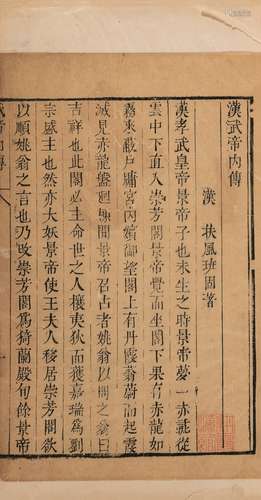 漢武帝內傳
漢 扶風班固著
漢孝武皇帝景帝子也未生之時景帝夢一赤彘從
雲中下直入崇芳閣景帝覺而坐閣下果有赤龍如
霧來蔽戶牖宮內嬪御望閣上有丹霞蓊蔚而起霞
滅見赤龍盤廻棟間景帝召占者姚翁以問之翁曰
吉祥也此閣必生命世之人攘夷狄而獲嘉瑞爲劉
宗盛主也然亦大妖景帝使王夫人移居崇芳閣欲
以順姚翁之言也乃改崇芳閣爲猗蘭殿旬餘景帝